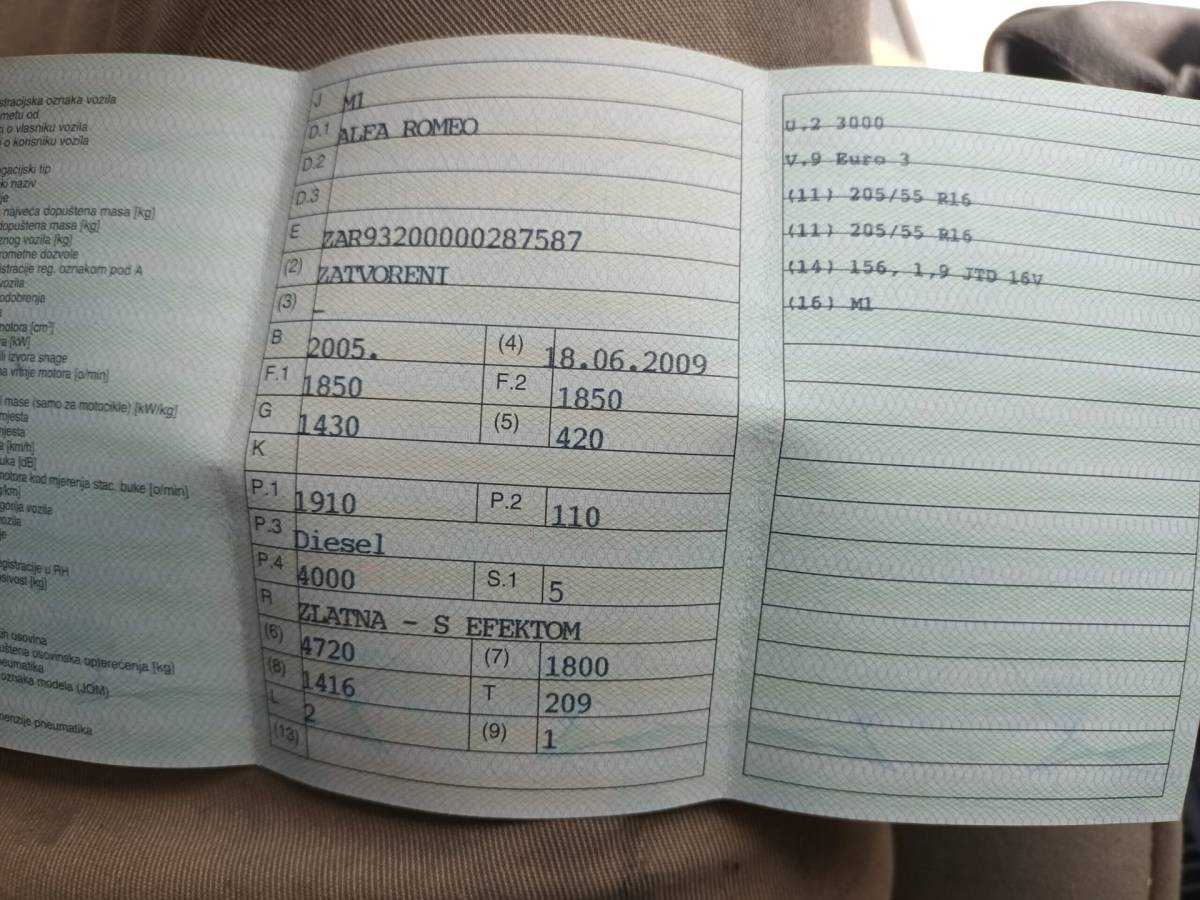 stracijska oznaka vozila
metu od
i o vlasniku vozila
i o korisniku vozila
gacijski tip
ki naziv
je
najveća dopuštena masa [kg]
dopuštena masa [kg]
znog vozila [kg]
rometne dozvole
istracije reg. oznakom pod A
vozila
odobrenja
motora [cm³]
a [kW]
ili izvora snage
na vrtnje motora [o/min]
i mase (samo za motocikle) [kW/kg]
mjesta
mjesta
a [km/h]
uka [dB]
motora kod mjerenja stac. buke [o/min]
g/km]
gorija vozila
vozila
je
egistracije u RH
sivost [kg]
ih osovina
uštena osovinska opterećenja [kg]
neumatika
oznaka modela (JOM)
menzije pneumatika
J M1
D.1 ALFA ROMEO
D.2
D.3
E ZAR93200000287587
(2) ZATVORENI
(3) –
B 2005. (4) 18.06.2009
F.1 1850 F.2 1850
G 1430 (5) 420
K
P.1 1910 P.2 110
P.3 Diesel
P.4 4000 S.1 5
R ZLATNA - S EFEKTOM
(6) 4720 (7) 1800
(8) 1416 T 209
L 2 (9) 1
(13)
U.2 3000
V.9 Euro 3
(11) 205/55 R16
(11) 205/55 R16
(14) 156, 1,9 JTD 16V
(16) M1